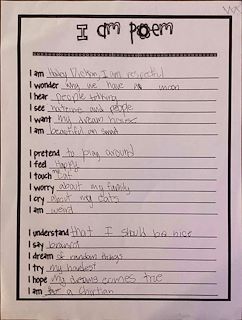 I am poem
I am Haley Dickson, I am respectful
I wonder why we have a moon
I hear people talking
I see nature and people
I want my dream house
I am beautiful an smart
I pretend to play around
I feel Happy
I touch my cat
I worry about my family
I cry about my cats
I am weird
I understand that I should be nice
I say
I dream of random things
I try my hardest
I hope my dreams comes true
I am a Chirtian